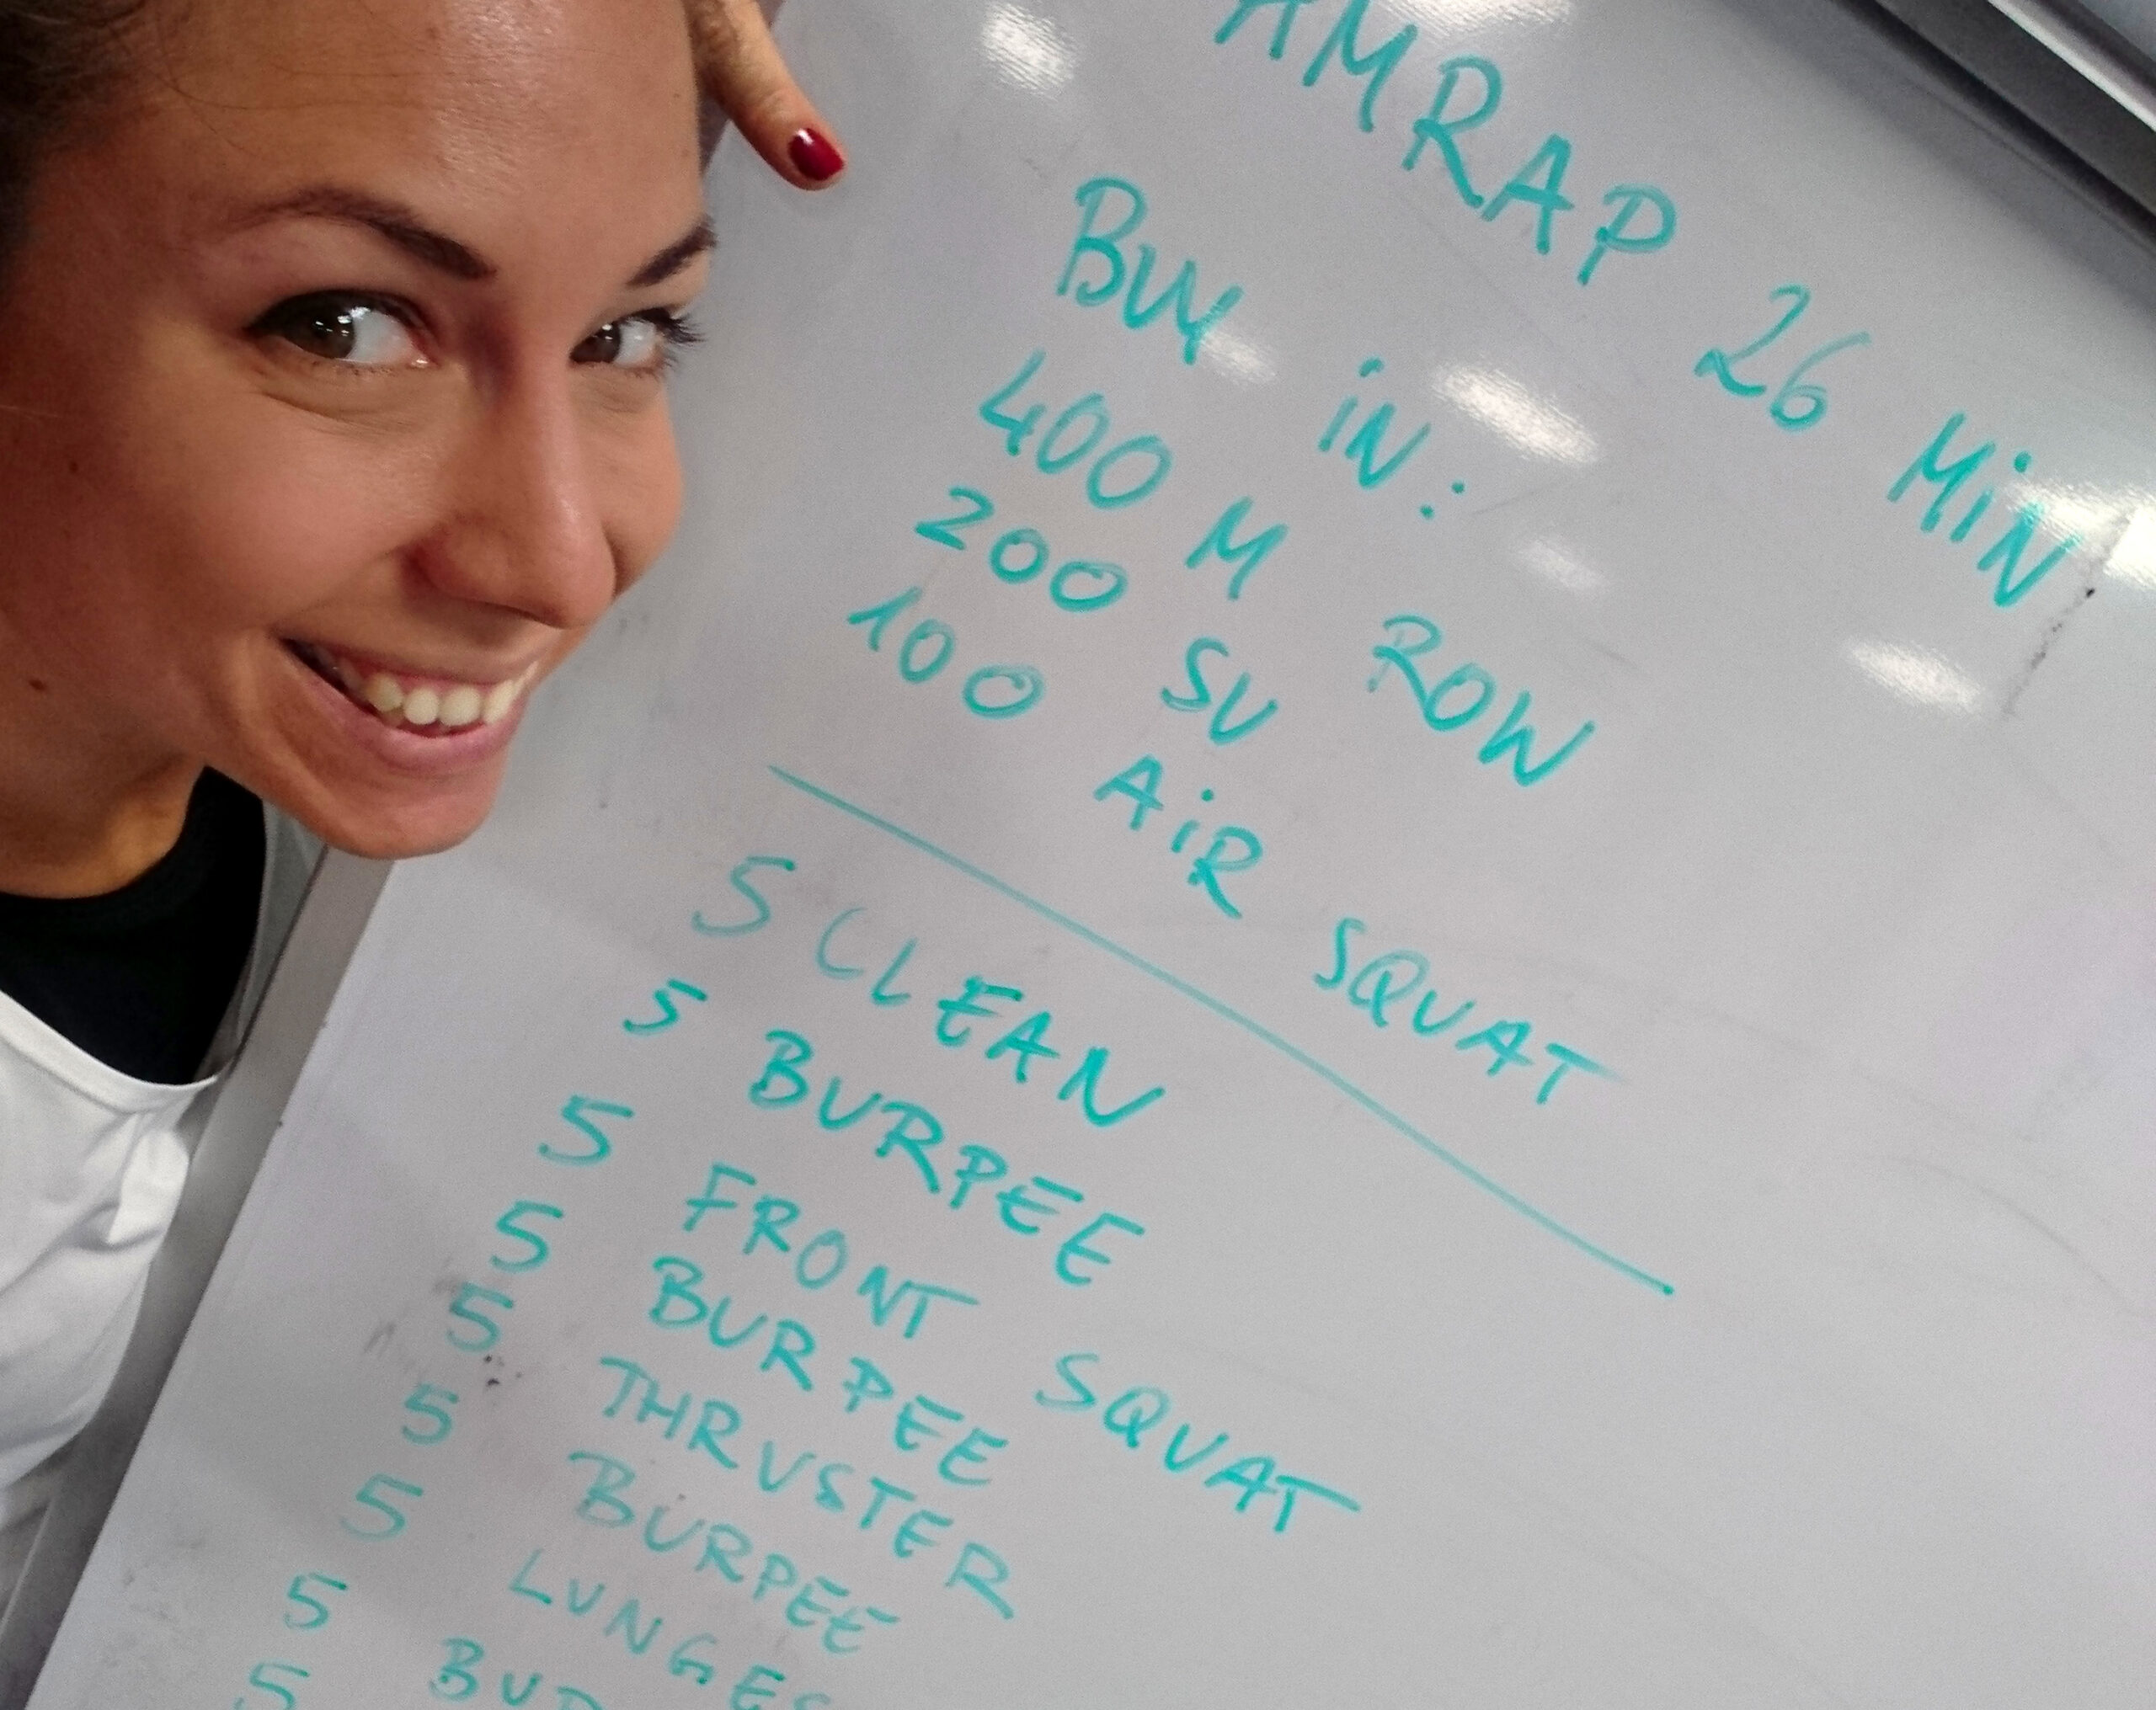 AMRAP 26 MiN
BUY iN:
400 M ROW
200 SU
100 AiR SQUAT
5 CLEAN
5 BURPEE
5 FRONT SQUAT
5 BURPEE
5 THRUSTER
5 BURPEE
5 LUNGES
5
5